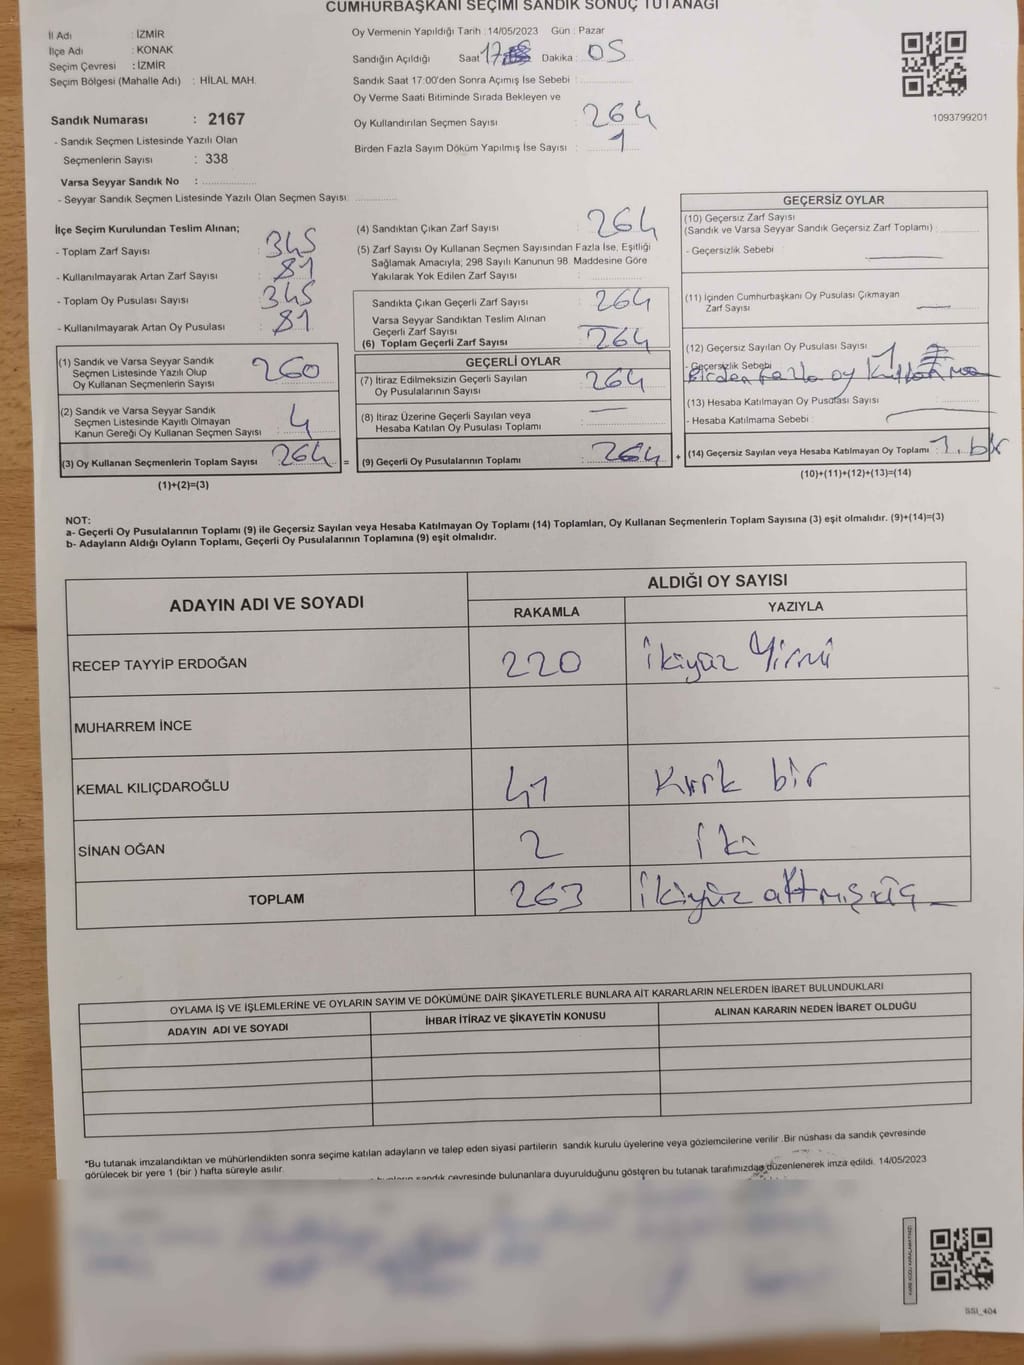 CUMHURBAŞKANI SEÇİMİ SANDIK SONUÇ TUTANAĞI
İl Adı : İZMİR
İlçe Adı : KONAK
Seçim Çevresi : İZMİR
Seçim Bölgesi (Mahalle Adı) : HİLAL MAH.
Oy Vermenin Yapıldığı Tarih : 14/05/2023 Gün : Pazar
Sandığın Açıldığı Saat 17 Dakika : 05
Sandık Saat 17:00'den Sonra Açımış İse Sebebi :
Oy Verme Saati Bitiminde Sırada Bekleyen ve
Oy Kullandırılan Seçmen Sayısı : 264
Birden Fazla Sayım Döküm Yapılmış İse Sayısı : 1
1093799201
Sandık Numarası : 2167
- Sandık Seçmen Listesinde Yazılı Olan
Seçmenlerin Sayısı : 338
Varsa Seyyar Sandık No :
- Seyyar Sandık Seçmen Listesinde Yazılı Olan Seçmen Sayısı:
İlçe Seçim Kurulundan Teslim Alınan;
- Toplam Zarf Sayısı : 345
- Kullanılmayarak Artan Zarf Sayısı : 81
- Toplam Oy Pusulası Sayısı : 345
- Kullanılmayarak Artan Oy Pusulası : 81
(1) Sandık ve Varsa Seyyar Sandık
Seçmen Listesinde Yazılı Olup
Oy Kullanan Seçmenlerin Sayısı : 260
(2) Sandık ve Varsa Seyyar Sandık
Seçmen Listesinde Kayıtlı Olmayan
Kanun Gereği Oy Kullanan Seçmen Sayısı : 4
(3) Oy Kullanan Seçmenlerin Toplam Sayısı : 264 =
(1)+(2)=(3)
(4) Sandıktan Çıkan Zarf Sayısı : 264
(5) Zarf Sayısı Oy Kullanan Seçmen Sayısından Fazla İse, Eşitliği
Sağlamak Amacıyla; 298 Sayılı Kanunun 98. Maddesine Göre
Yakılarak Yok Edilen Zarf Sayısı :
Sandıkta Çıkan Geçerli Zarf Sayısı : 264
Varsa Seyyar Sandıktan Teslim Alınan
Geçerli Zarf Sayısı
(6) Toplam Geçerli Zarf Sayısı : 264
GEÇERLİ OYLAR
(7) İtiraz Edilmeksizin Geçerli Sayılan
Oy Pusulalarının Sayısı : 264
(8) İtiraz Üzerine Geçerli Sayılan veya
Hesaba Katılan Oy Pusulası Toplamı : —
(9) Geçerli Oy Pusulalarının Toplamı : 264 +
GEÇERSİZ OYLAR
(10) Geçersiz Zarf Sayısı
(Sandık ve Varsa Seyyar Sandık Geçersiz Zarf Toplamı) :
- Geçersizlik Sebebi : —
(11) İçinden Cumhurbaşkanı Oy Pusulası Çıkmayan
Zarf Sayısı : —
(12) Geçersiz Sayılan Oy Pusulası Sayısı : 1
- Geçersizlik Sebebi :
Birden fazla oy kullanma
(13) Hesaba Katılmayan Oy Pusulası Sayısı :
- Hesaba Katılmama Sebebi : —
(14) Geçersiz Sayılan veya Hesaba Katılmayan Oy Toplamı : 1. bir
(10)+(11)+(12)+(13)=(14)
NOT:
a- Geçerli Oy Pusulalarının Toplamı (9) ile Geçersiz Sayılan veya Hesaba Katılmayan Oy Toplamı (14) Toplamları, Oy Kullanan Seçmenlerin Toplam Sayısına (3) eşit olmalıdır. (9)+(14)=(3)
b- Adayların Aldığı Oyların Toplamı, Geçerli Oy Pusulalarının Toplamına (9) eşit olmalıdır.
ADAYIN ADI VE SOYADI
ALDIĞI OY SAYISI
RAKAMLA YAZIYLA
RECEP TAYYİP ERDOĞAN 220 İkiyüz Yirmi
MUHARREM İNCE
KEMAL KILIÇDAROĞLU 41 Kırk bir
SİNAN OĞAN 2 İki
TOPLAM 263 İkiyüz altmış üç
OYLAMA İŞ VE İŞLEMLERİNE VE OYLARIN SAYIM VE DÖKÜMÜNE DAİR ŞİKAYETLERLE BUNLARA AİT KARARLARIN NELERDEN İBARET BULUNDUKLARI
ADAYIN ADI VE SOYADI İHBAR İTİRAZ VE ŞİKAYETİN KONUSU ALINAN KARARIN NEDEN İBARET OLDUĞU
*Bu tutanak imzalandıktan ve mühürlendikten sonra seçime katılan adayların ve talep eden siyasi partilerin sandık kurulu üyelerine veya gözlemcilerine verilir. Bir nüshası da sandık çevresinde
görülecek bir yere 1 (bir ) hafta süreyle asılır.
sandık çevresinde bulunanlara duyurulduğunu gösteren bu tutanak tarafımızdan düzenlenerek imza edildi. 14/05/2023
SSI_404